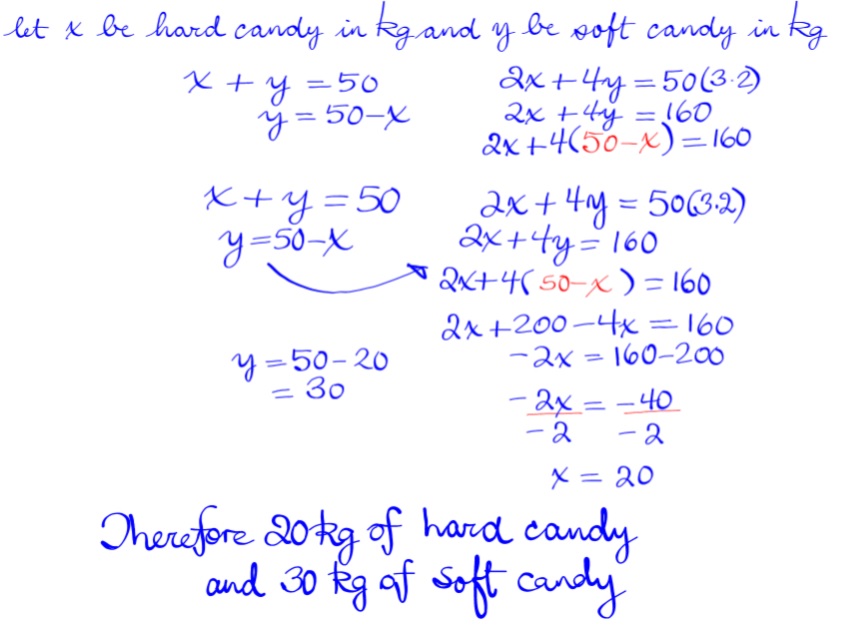 let x be hard candy in kg and y be soft candy in kg
x + y = 50
y = 50-x
2x+4y = 50(3·2)
2x +4y = 160
2x+4(50-x) = 160
x + y = 50
y=50-x
2x+4y = 50(3.2)
2x+4y = 160
2x+4( 50-x ) = 160
2x+200-4x = 160
-2x = 160-200
y = 50-20
= 30
-2x = -40
-2 -2
x = 20
Therefore 20kg of hard candy
and 30 kg of soft candy